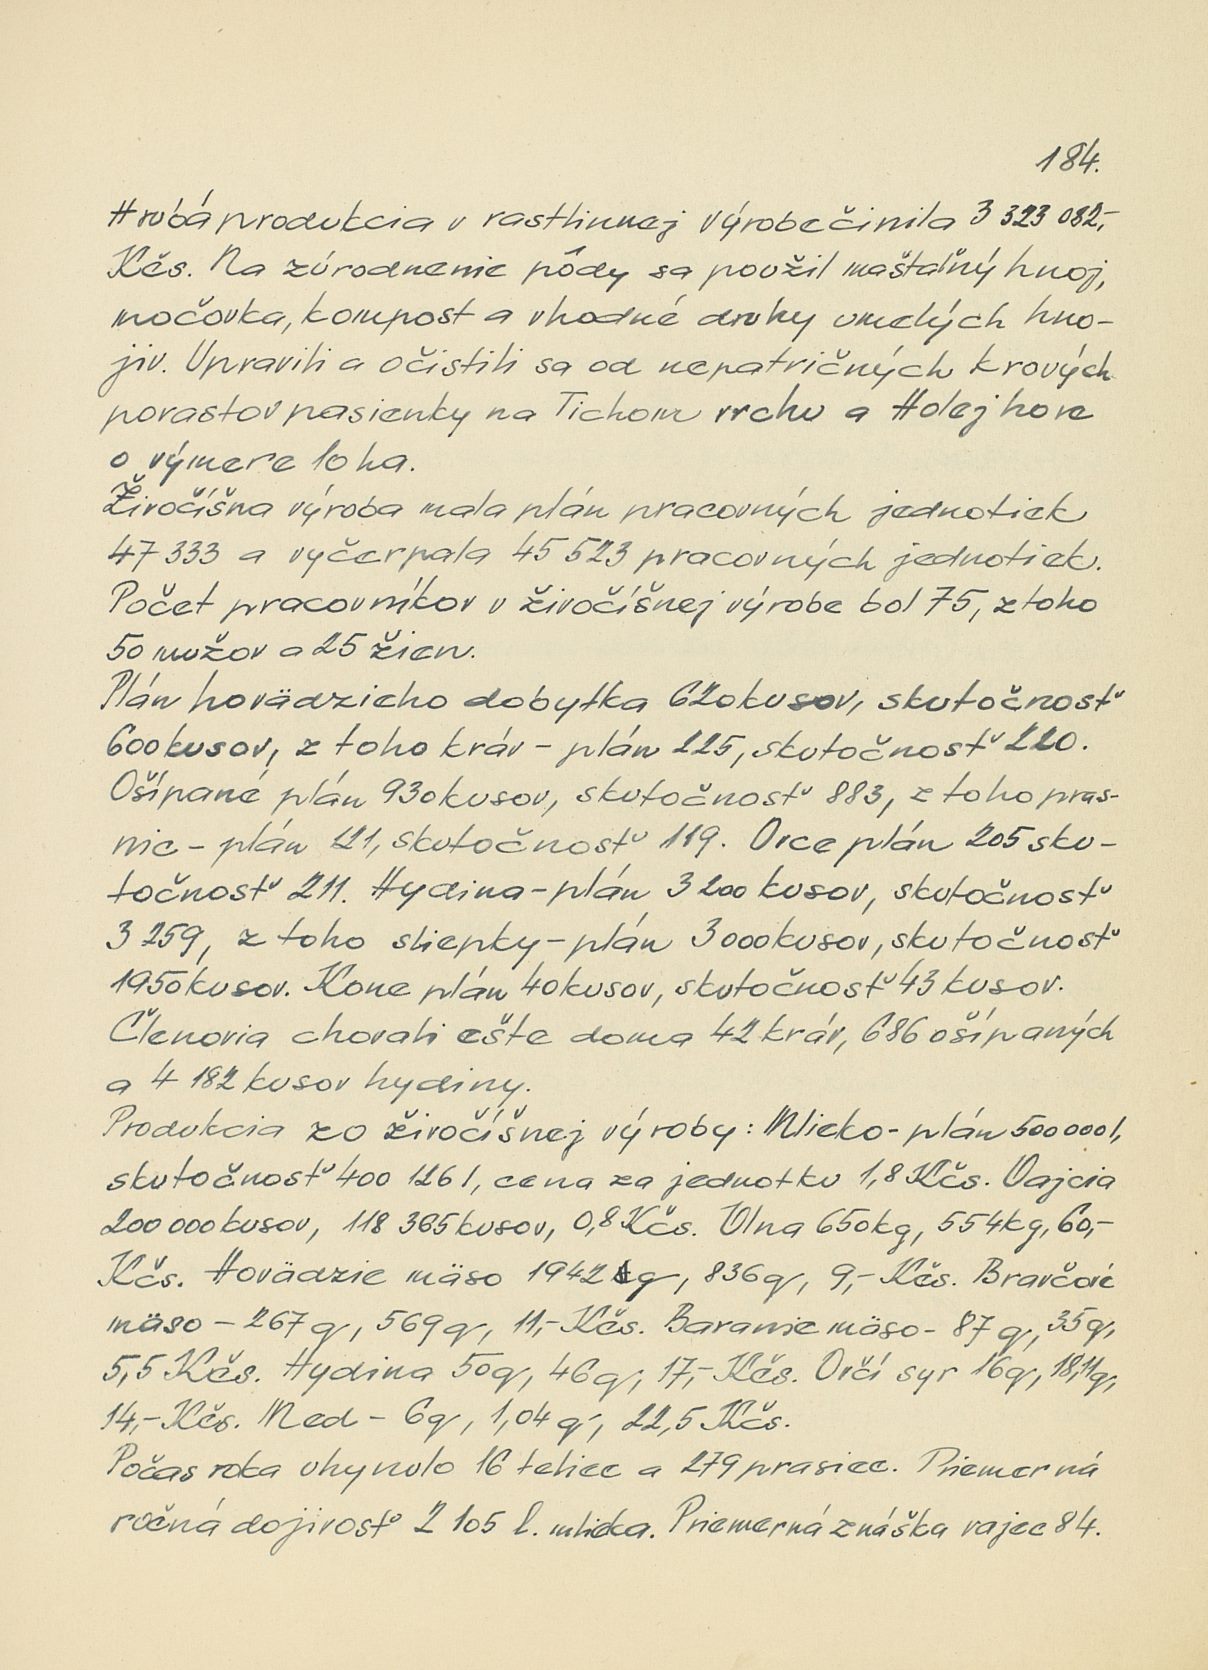 184.
Hrubá produkcia v rastlinnej výrobe činila 3 323 082,-
Kčs. Na zúrodnenie pôdy sa použil maštaľný hnoj,
močovka, kompost a vhodné druhy umelých hno-
jív. Upravili a očistili sa od nepatričných krových
porastov pasienky na Tichom vrchu a Holej hore
o výmere 10 ha.
Živočíšna výroba mala plán pracovných jednotiek
47 333 a vyčerpala 45 523 pracovných jednotiek.
Počet pracovníkov v živočíšnej výrobe bol 75, z toho
50 mužov a 25 žien.
Plán hovädzieho dobytka 620 kusov, skutočnosť
600 kusov, z toho kráv - plán 225, skutočnosť 220.
Ošípané plán 930 kusov, skutočnosť 883, z toho pras-
nic - plán 121, skutočnosť 119. Ovce plán 205 sku-
točnosť 211. Hydina - plán 3 200 kusov, skutočnosť
3 259, z toho sliepky - plán 3 000 kusov, skutočnosť
1950 kusov. Kone plán 40 kusov, skutočnosť 43 kusov.
Členovia chovali ešte doma 42 kráv, 686 ošípaných
a 4 182 kusov hydiny.
Produkcia zo živočíšnej výroby: Mlieko - plán 500 000 l,
skutočnosť 400 126 l, cena za jednotku 1,8 Kčs. Vajcia
200 000 kusov, 118 365 kusov, 0,8 Kčs. Vlna 650 kg, 554 kg, 60,-
Kčs. Hovädzie mäso 1942 q, 836 q, 9,- Kčs. Bravčové
mäso - 267 q, 569 q, 11,- Kčs. Baranie mäso - 87 q, 35 q,
5,5 Kčs. Hydina 50 q, 46 q, 17,- Kčs. Ovčí syr 16 q, 18,11 q,
14,- Kčs. Med - 6 q, 1,04 q, 22,5 Kčs.
Počas roka uhynulo 16 teliec a 279 prasiec. Priemerná
ročná dojivosť 2 105 l. mlieka. Priemerná znáška vajec 84.